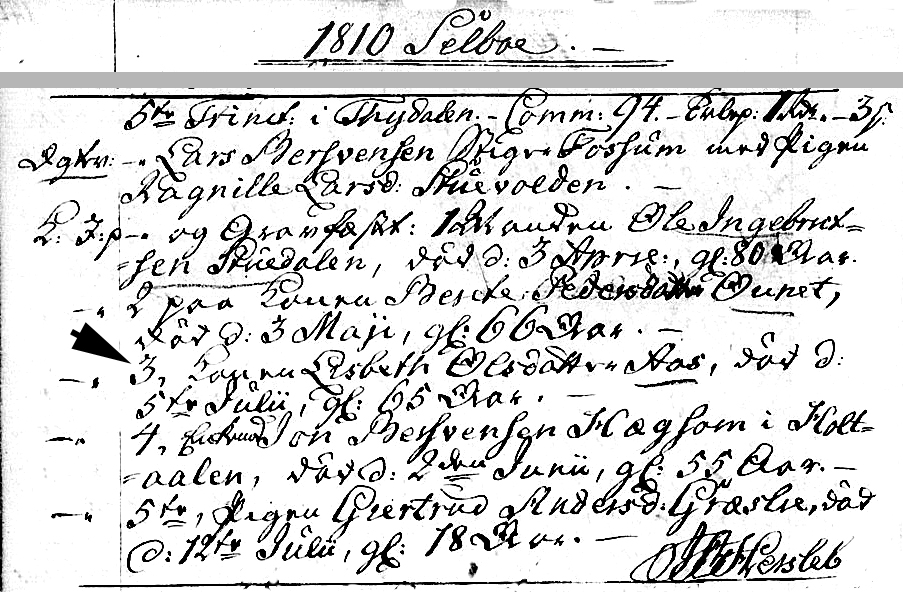 1810 Selboe. —
5te Trinit: i Thydalen. - Comm: 94. - Erlep: 1 Rdr. - 3 s.
dgkv: -. Lars Bersvensen Stuev Fossum med Pigen
Ragnille Larsd: Stuevolden. —
K: I: p -. og Gravfæst: 1 Manden Ole Ingebrict=
=sen Stuedalen, død d: 3 April:, gl: 80 Aar.
-. 2 paa Konen Berete Pedersdatter Øunet,
død d: 3 Maji, gl: 66 Aar. —
-. 3, Konen Lisbeth Olsdatter Aas, død d:
5te Julii, gl: 65 Aar. —
-. 4, Enkmd Jon Bersvensen Hægsom i Holt=
=aalen, død d: 2den Junii, gl: 55 Aar. —
-. 5te, Pigen Giertrud Andersd: Græslie, død
d: 12te Julii, gl: 18 Aar. —
Hersleb